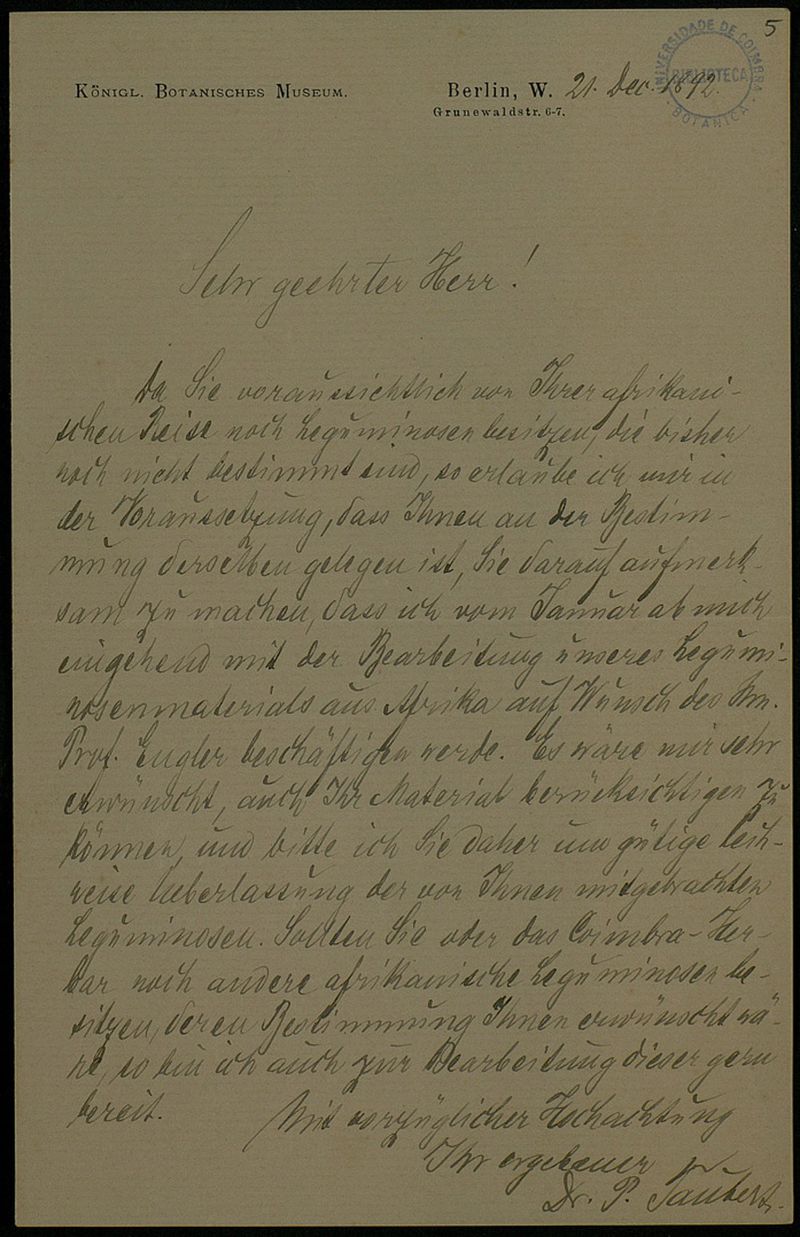 5
UNIVERSIDADE DE COIMBRA
BIBLIOTECA
BOTANICA
KÖNIGL. BOTANISCHES MUSEUM.
Berlin, W. 21. Dec. 1892.
Grunewaldstr. 6-7.
Sehr geehrter Herr!
Da Sie voraussichtlich von Ihrer afrikani-
schen Reise noch Leguminosen besitzen, die bisher
noch nicht bestimmt sind, so erlaube ich mir in
der Voraussetzung, dass Ihnen an der Bestim-
mung derselben gelegen ist, Sie darauf aufmerk-
sam zu machen, dass ich vom Januar ab mich
eingehend mit der Bearbeitung unseres Legumi-
nosenmaterials aus Afrika auf Wunsch des Hrn.
Prof. Engler beschäftigen werde. Es wäre mir sehr
erwünscht, auch Ihr Material berücksichtigen zu
können, und bitte ich Sie daher um gütige leih-
weise Ueberlassung der von Ihnen mitgebrachten
Leguminosen. Sollten Sie oder das Coimbra-Her-
bar noch andere afrikanische Leguminosen be-
sitzen, deren Bestimmung Ihnen erwünscht wä-
re, so bin ich auch zur Bearbeitung dieser gern
bereit.
Mit vorzüglicher Hochachtung
Ihr ergebener
Dr. P. Taubert.